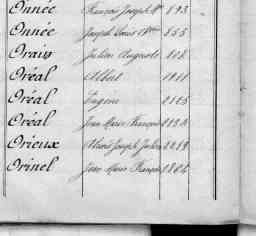 Onnée François Joseph M 893
Onnée Joseph Louis 555
Orain Julien Auguste 808
Oréal Albert 1911
Oréal Eugène 2125
Oréal Jean Marie François
Orieux Alexis Joseph Julien 2259
Orinel Jean Marie François 1864